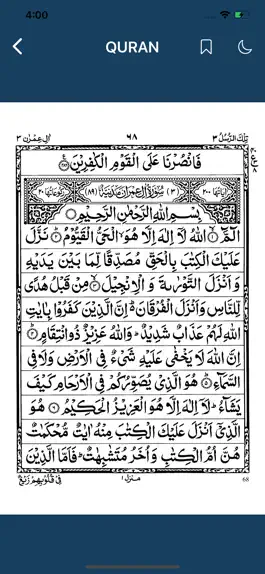 4:00
QURAN
تِلْكَ الرُّسُلُ ٣ ٦٨ اٰلِ عِمْرٰن ٣
فَانْصُرْنَا عَلَى الْقَوْمِ الْكٰفِرِيْنَ
اٰيَاتُهَا ٢٠٠ (٣) سُوْرَةُ اٰلِ عِمْرٰنَ مَدَنِيَّةٌ (٨٩) رُكُوْعَاتُهَا ٢٠
بِسْمِ اللهِ الرَّحْمٰنِ الرَّحِيْمِ
الٓمَّٓ ۙ اللهُ لَاۤ اِلٰهَ اِلَّا هُوَ ۙ الْحَيُّ الْقَيُّوْمُ ۙ نَزَّلَ
عَلَيْكَ الْكِتٰبَ بِالْحَقِّ مُصَدِّقًا لِّمَا بَيْنَ يَدَيْهِ
وَاَنْزَلَ التَّوْرٰىةَ وَ الْاِنْجِيْلَ ۙ مِنْ قَبْلُ هُدًى
لِّلنَّاسِ وَاَنْزَلَ الْفُرْقَانَ ؕ اِنَّ الَّذِيْنَ كَفَرُوْا بِاٰيٰتِ
اللهِ لَهُمْ عَذَابٌ شَدِيْدٌ ؕ وَاللهُ عَزِيْزٌ ذُو انْتِقَامٍ
اِنَّ اللهَ لَا يَخْفٰى عَلَيْهِ شَيْءٌ فِى الْاَرْضِ وَلَا فِى
السَّمَآءِ ؕ هُوَ الَّذِيْ يُصَوِّرُكُمْ فِى الْاَرْحَامِ كَيْفَ
يَشَآءُ ؕ لَاۤ اِلٰهَ اِلَّا هُوَ الْعَزِيْزُ الْحَكِيْمُ هُوَ
الَّذِيْۤ اَنْزَلَ عَلَيْكَ الْكِتٰبَ مِنْهُ اٰيٰتٌ مُّحْكَمٰتٌ
هُنَّ اُمُّ الْكِتٰبِ وَاُخَرُ مُتَشٰبِهٰتٌ ؕ فَاَمَّا الَّذِيْنَ
فِيْ قُلُوْبِهِمْ زَيْغٌ منزل ١ 68